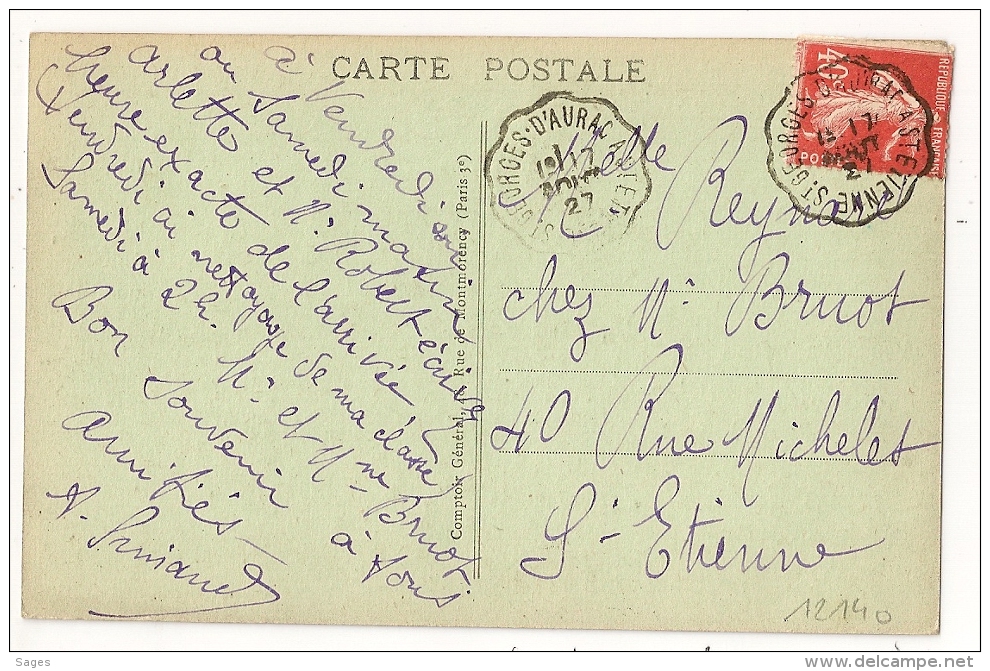 CARTE POSTALE
à Vendredi soir
ou Samedi matin
Arlette et Mr Robert écrivez
heure exacte de l'arrivée
(Vendredi ai nettoyage de ma classe)
Samedi à 2h. Mr et Mme Bruot
Bon souvenir à tous
amitiés
Comptoir Général, Rue de Montmorency (Paris 3e)
ST GEORGES-D'AURAC A ST ETIENNE
17
AOUT
27
ST GEORGES-D'AURAC A ST ETIENNE
17
AOUT
27
40c
REPUBLIQUE FRANÇAISE
POSTES
Melle Reynal
chez Mr Bruot
40 Rue Michelet
St Etienne
12140
Sages
delcampe.net